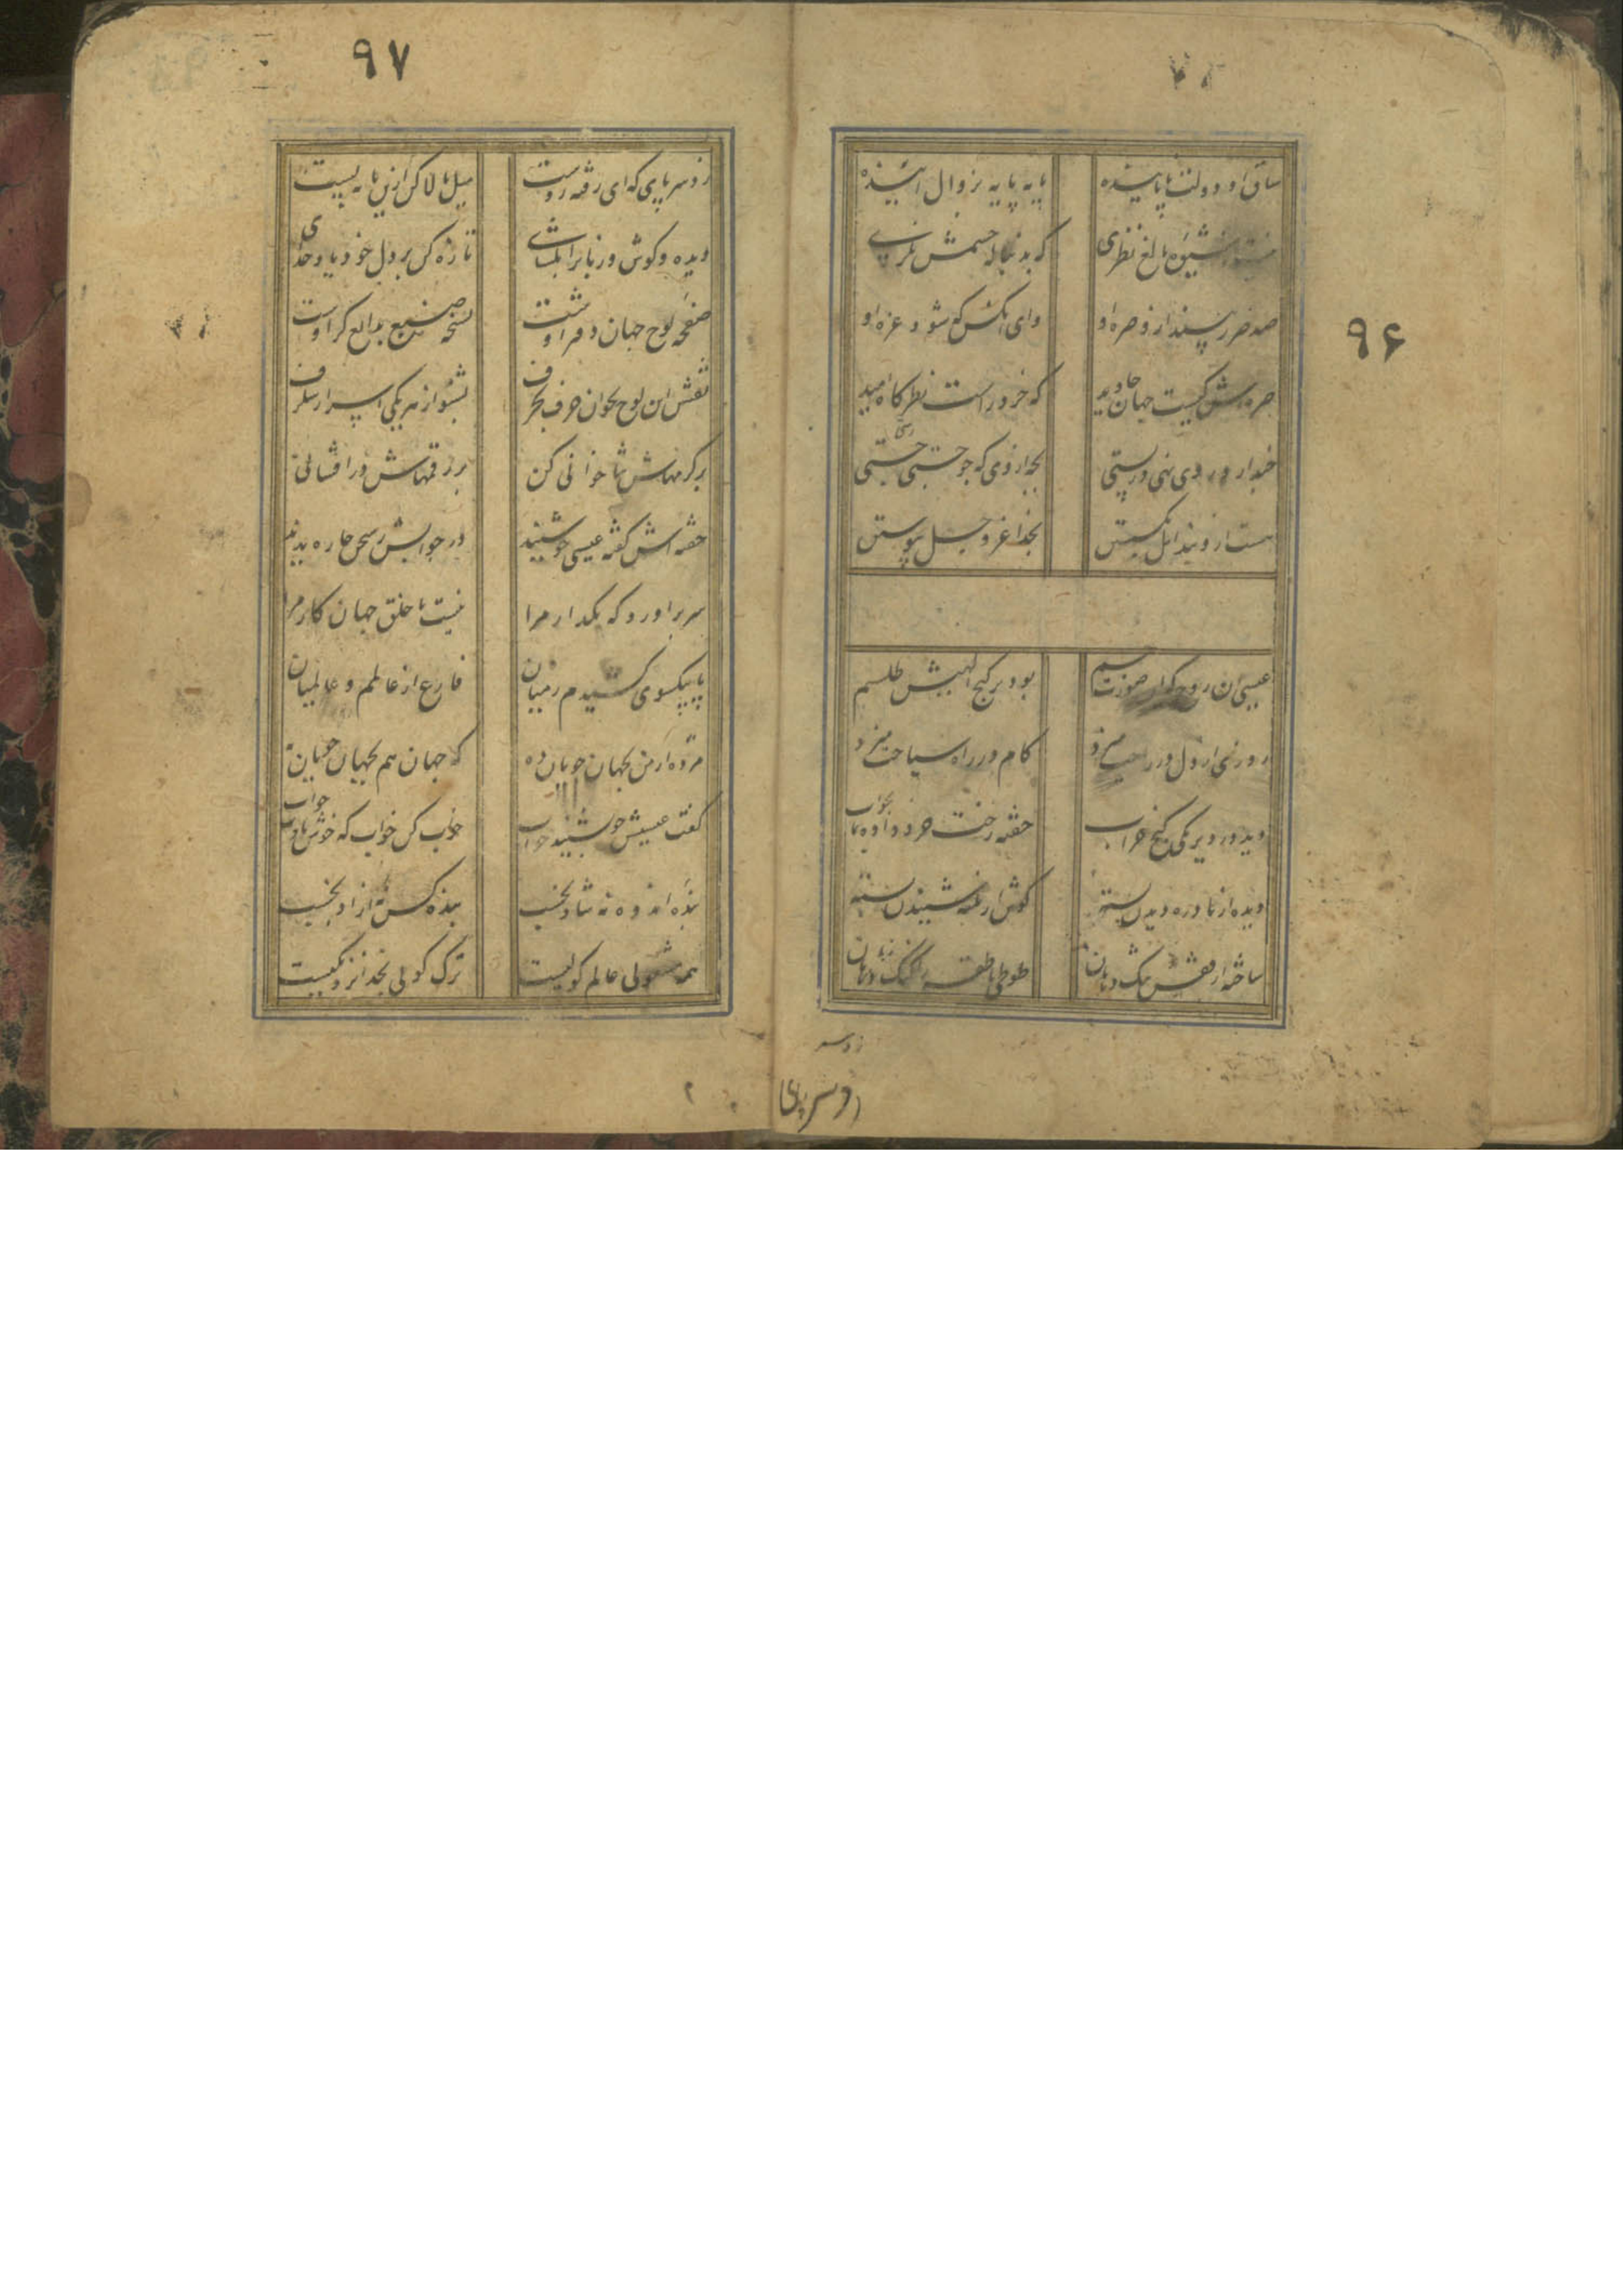 ۹۶
ساقی او دولت پاینده پایه پایه بزوال آینده
شیوه بالغ نظری که بدنباله چشمش نگری
صد ضرر بیند از و صره او وای آنکس که شود غره او
صره‌اش کیست جهان جاوید که خرد راست نظرگاه امید
خبد ار درردی نهی درپستی بچه ار وی که جو جستی جستی
هست از و بند امل بگسستن بخدا عز و جل پیوستن
عیسی آن روح که از صورت جسم بود بر گنج الهیش طلسم
روزی از ول در میزد کام در راه سیاحت میزد
دید در دیر یکی کنج خراب خفته رخت خرد داده بخواب
دیده از نادره دیدن بسته گوش از نکته شنیدن بسته
ساخته از نقش تنگ دهان طوطی ناطقه را گنگ زبان
زد سر پای
۹۷
زد سر پای که ای رفته ز دست میل بالا کن ازین پایه پست
دیده و گوش و زبانرا بگشای تازه کن بر دل خود یاد خدای
صفحه لوح جهان دفتر اوست نسخه صنع بدایع گر اوست
نقش این لوح بخوان حرف بحرف بشنو از هر یکی اسرار شگرف
بر کرمهاش ثنا خوانی کن بر رقمهاش در افشانی
خفته اش گفته عیسی چو شنید در جوابش ز سخن چاره ندید
سر برآورد که بگذار مرا نیست با خلق جهان کار مرا
پا بیکسوی کشیدم ز میان فارغ از عالمم و عالمیان
مژده از من بجهان جویان ده که جهان هم بجهان جویان
گفت عیسیش چو بشنید جواب خواب کن خواب که خوش بادت خواب
بنده اندوه نه شاد بخسب بنده کس نه آزاد بخسب
همه مشغولی عالم گولیست ترک گولی بخدا نزدیکیست